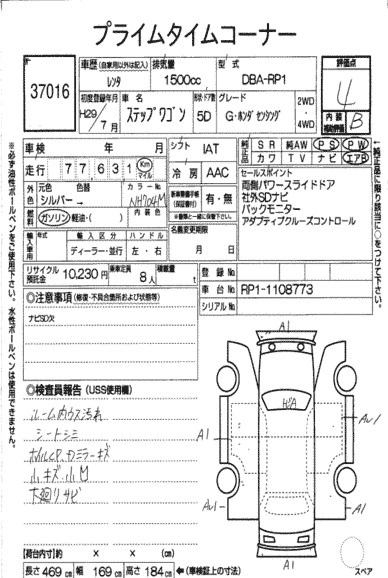 プライムタイムコーナー
37016
車歴 (自家用以外は記入) 排気量 型式
レンタ 1500cc DBA-RP1
初度登録年月 車名 形状・ドア数 グレード
H29/7月 ステップワゴン 5D G・ホンダ センシング 2WD・4WD
評価点
4
内装補助評価 B
車検 年 月 シフト IAT
純正品 SR 純AW PS PW
カワ TV ナビ エアB
走行 77631 Km マイル 冷房 AAC
外色 元色 色替 カラーNo.
シルバー→ NH704M
新車整備手帳(保証書付) 有・無
※書類と一緒に保管下さい。
燃料 ガソリン・軽油・( ) 内装色
セールスポイント
両側パワースライドドア
社外SDナビ
バックモニター
アダプティブクルーズコントロール
輸入車用 年式 輸入区分 ハンドル
ディーラー・並行 左・右
名義変更期限
月 日
リサイクル預託金 10,230円 乗車定員 8人 積載量 t
登録No.
車台No. RP1-1108773
シリアルNo.
◎注意事項 (修復・不具合箇所および状態等)
ナビSD欠
◎検査員報告 (USS使用欄)
ルーム内ウス汚れ
シートシミ
小キズ小凹
下廻りサビ
A1
A1
A1
A1
Aw1
Aw1
スペア
【荷台内寸】約 × × (cm)
長さ 469cm 幅 169cm 高さ 184cm ←(車検証上の寸法)
※必ず油性ボールペンをご使用下さい。水性ボールペンは使用できません。
★純正品に限り該当に○をつけて下さい。